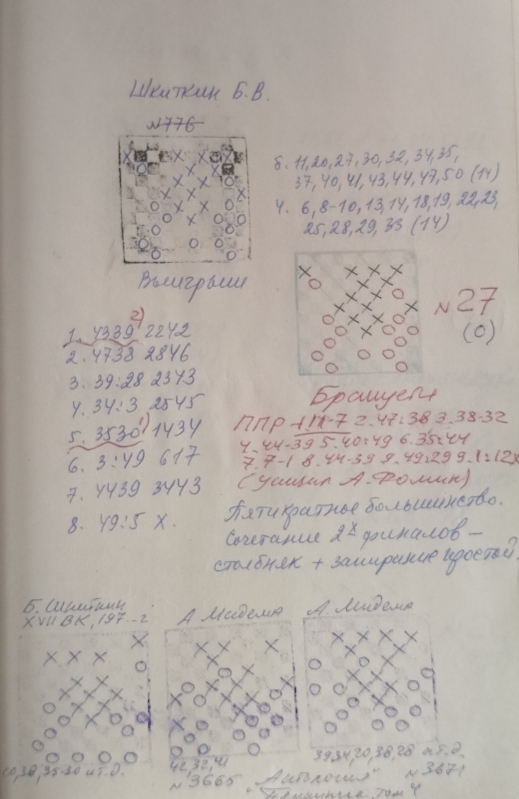 Шкиткин Б.В.
№776
Б. 11,20,27,30,32,34,35,
37,40,41,43,44,47,50 (14)
Ч. 6,8-10,13,14,18,19,22,23,
25,28,29,33 (14)
Выигрыш
№27
(0)
2)
1. 4339 2242
2. 4738 2846
3. 39:28 2343
4. 34:3 2545
1)
5. 3530 1434
6. 3:49 617
7. 4439 3443
8. 49:5 X.
ППР 11-7 2.47:38 3.38-32
4.44-39 5.40:49 6.35:44
7.7-1 8.44-39 9.49:29 9.1:12X
(А.Фомин)
Пятикратное большинство.
Сочетание 2х финалов —
столбняк + запирание простой.
Б. Шкиткин
XVII ВК, 197--г
А Мидема
А. Мидема
и т.д.
42,32,41
№3665
39,34,20,38,28 и т.д.
№3671
"Антология"
том 4